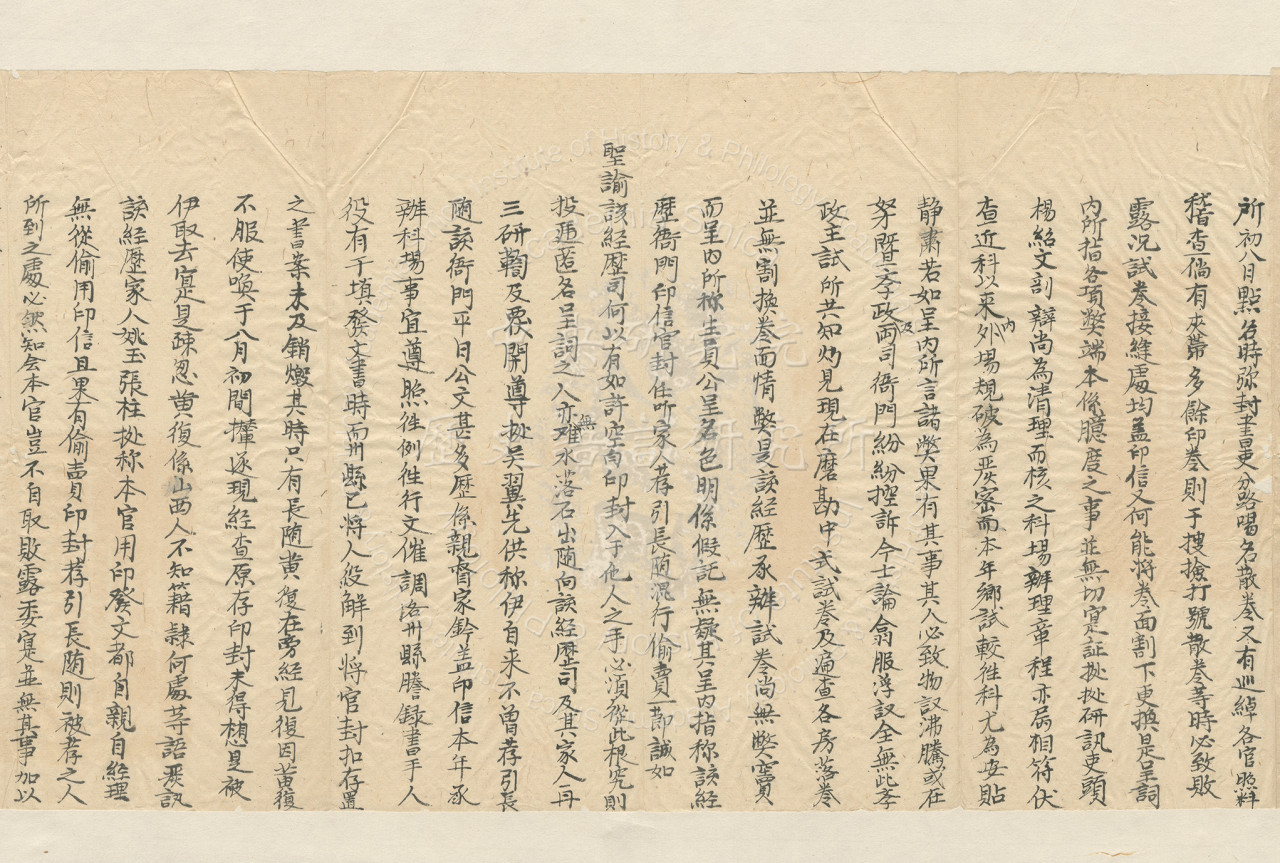 所初八日點名時弥封書吏分路唱名散卷又有巡綽各官照料
稽查倘有夾帶多餘印卷則于搜撿打號散卷等時必致敗
露况試卷接縫處均盖印信又何能將卷面割下更換是呈詞
內所指各項弊端本係臆度之事並無切寔証㨿㨿研訊吏頭
楊紹文剖辯尚為清理而核之科場辦理章程亦屬相符伏
查近科以來內外場規破為嚴密而本年鄉試較徃科尤為安貼
静肅若如呈內所言諸弊果有其事其人必致物議沸騰或在
孥暨李政及兩司衙門紛紛控訴今士論翕服浮議全無此孥
政主試所共知灼見現在磨勘中式試卷及遍查各房落卷
並無割換卷面情弊是該經歷承辦試卷尚無弊竇
而呈內所称吉貢公呈名色明係假託無疑其呈內指称該經
歷衙門印信官封任听家人荐引長随混行偷賣一節誠如
聖諭該經歷司何以有如許空白印封入于他人之手必須從此根究則
投遞匿名呈詞之人亦無难水落石出随向該經歷司及其家人再
三研鞫及覆開導㨿吳翼先供称伊自来不曾荐引長
随該衙門平日公文甚多歷係親督家鈐盖印信本年承
辦科場事宜遵照徃例徃行文催調滁州縣謄録書手人
役有于填發文書時而州縣已將人役解到將官封扣存置
之書案未及銷燬其時只有長随黄復在旁經見復因黄復
不服使喚于八月初間攆逐現經查原存印封未得想是被
伊取去寔是疎忽黄復係山西人不知籍隸何處等語嚴訊
該經歷家人姚玉張柱㨿称本官用印發文都自親自經理
無從偷用印信且果有偷賣印封荐引長随則被荐之人
所到之處必然知会本官豈不自取敗露委寔並無其事加以